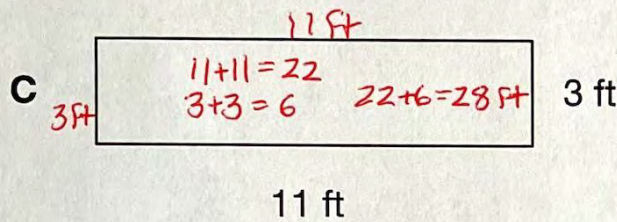 11 ft
C
11+11=22
3 ft
3+3=6
22+6=28 ft
3 ft
11 ft